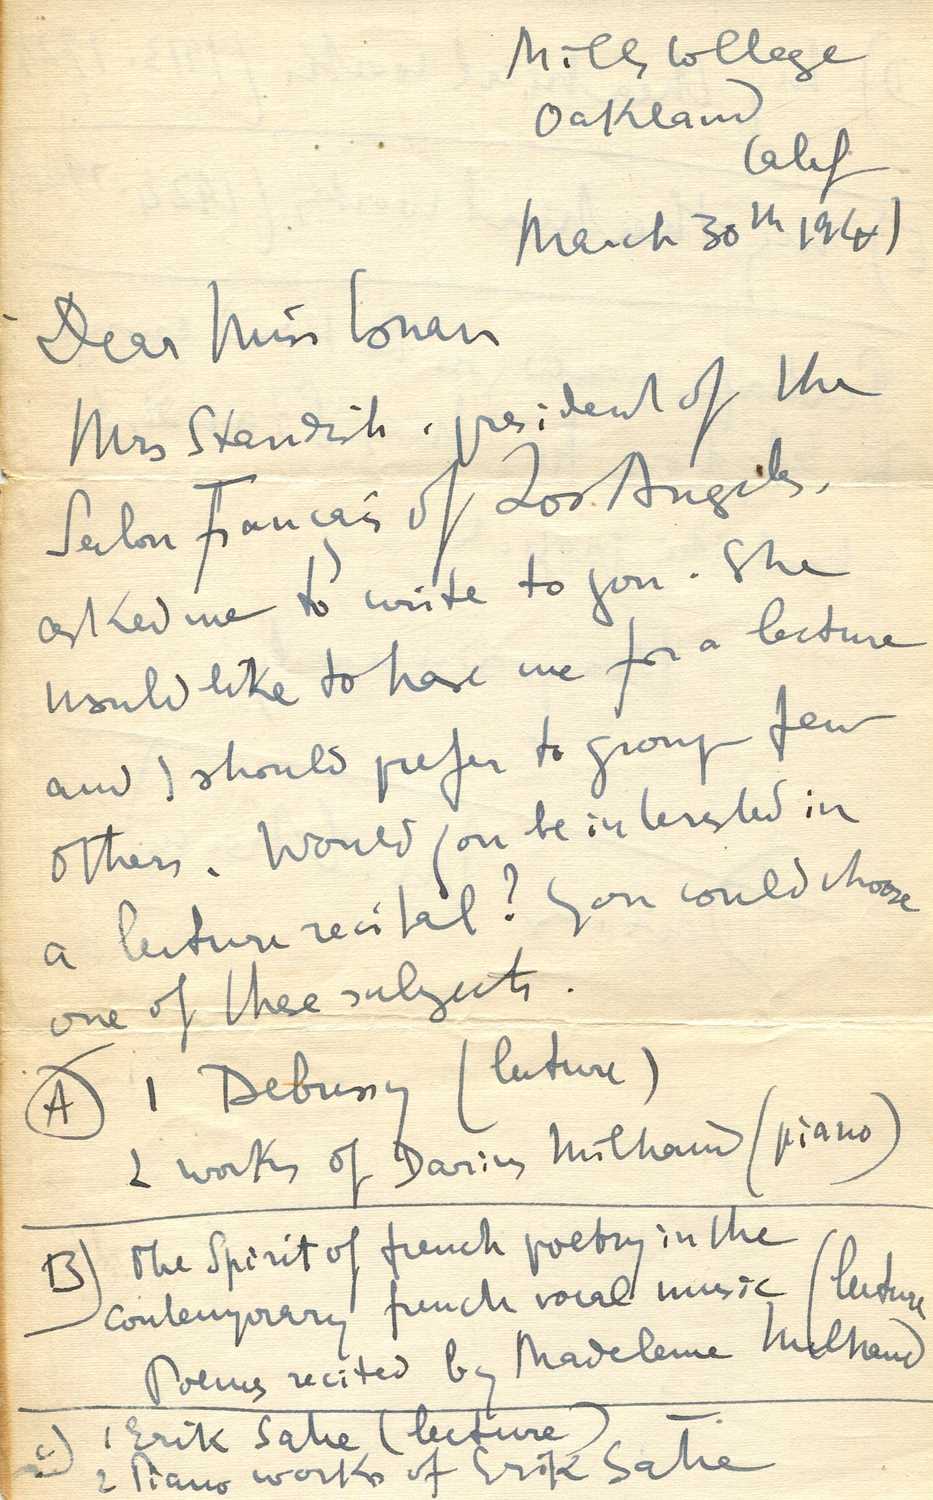 Mills College
Oakland
Calif
March 30th 1941
Dear Miss Conan
Mrs Standish, president of the
Salon Français of Los Angeles,
asked me to write to you. She
would like to have me for a lecture
and I should prefer to group few
others. Would you be interested in
a lecture recital? You could choose
one of these subjects.
A 1 Debussy (lecture)
2 works of Darius Milhaud (piano)
B) The Spirit of french poetry in the
contemporary french vocal music (lecture
Poems recited by Madeleine Milhaud
C) 1 Erik Satie (lecture)
2 Piano works of Erik Satie